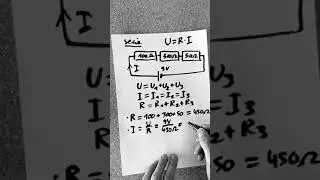 serie U=R·I
100Ω 300Ω 50Ω
I
9V
U = U₁ + U₂ + U₃
I = I₁ = I₂ = I₃
R = R₁ + R₂ + R₃
· R = 100 + 300 + 50 = 450Ω
· I = U/R = 9V/450Ω =